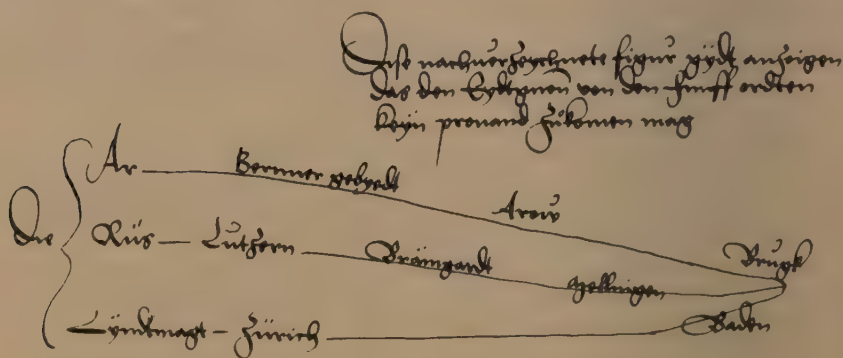 Dise nachuerzeychnete figur gydt anzeigen
das den Eydtgnon von den fünff ordten
keyn prouand zukomen mag
Die
Ar Bernner gebyedt Arow
Rüs Lutzern Brämgardt Mellingen Brugk
Lyndtmagt Zürich Baden